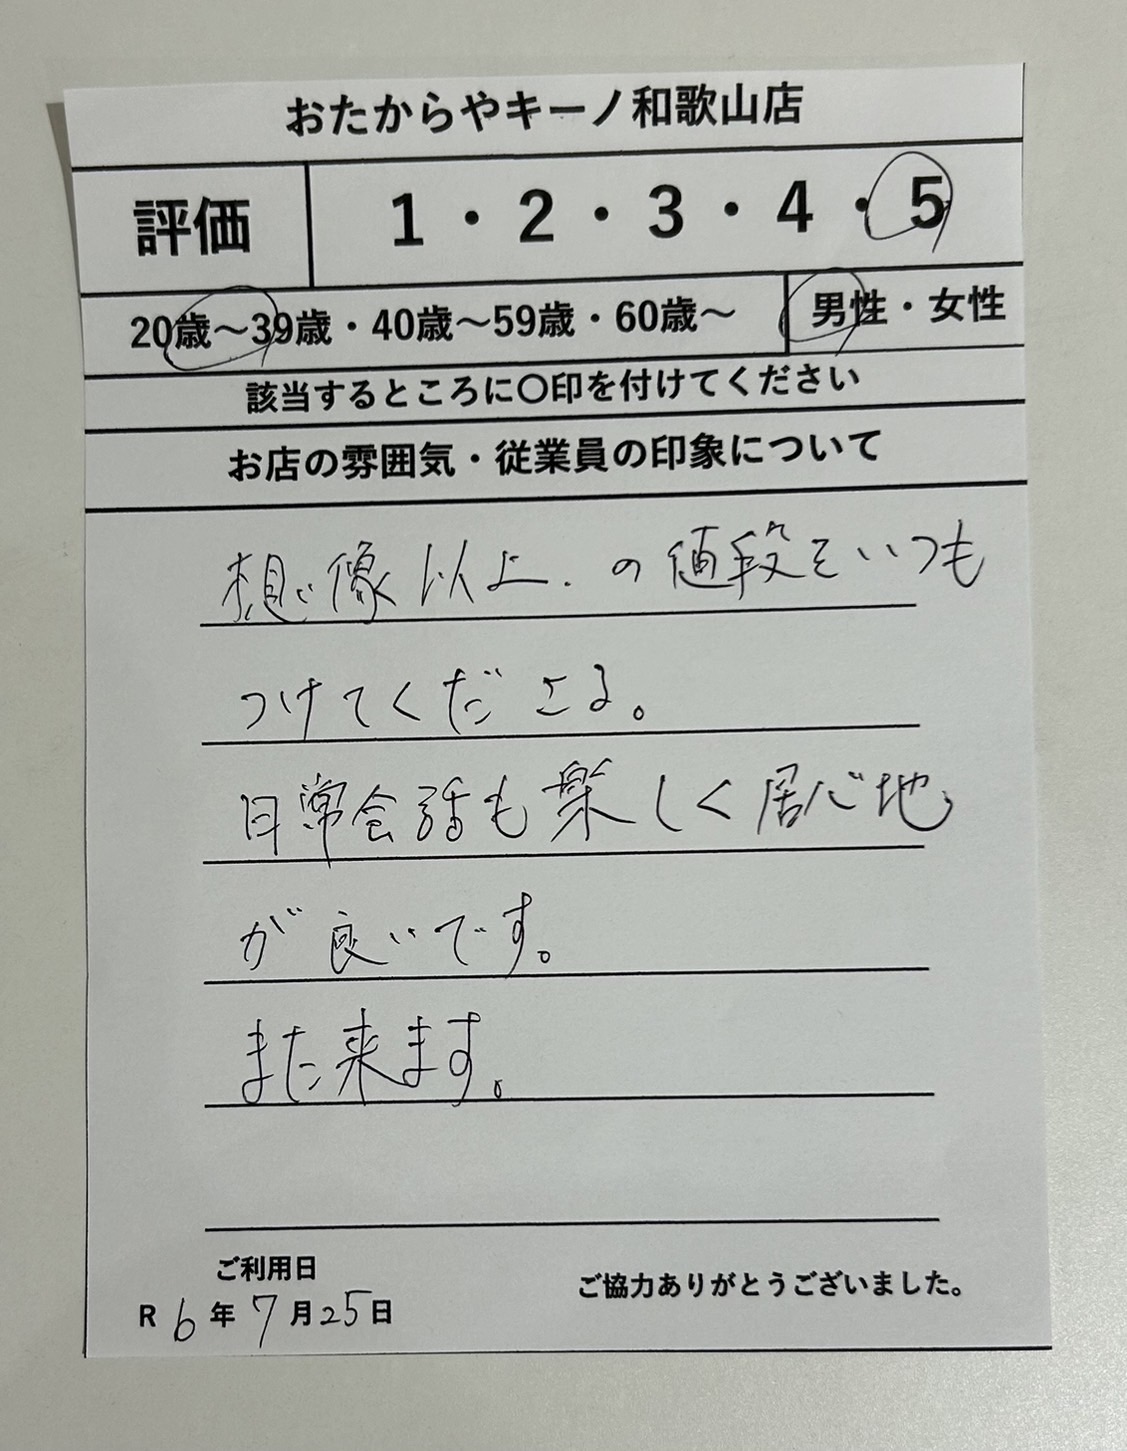 おたからやキーノ和歌山店
評価 1・2・3・4・5
20歳～39歳・40歳～59歳・60歳～ 男性・女性
該当するところに〇印を付けてください
お店の雰囲気・従業員の印象について
想像以上の値段をいつも
つけてくださる。
日常会話も楽しく居心地
が良いです。
また来ます。
ご利用日
R6年7月25日
ご協力ありがとうございました。